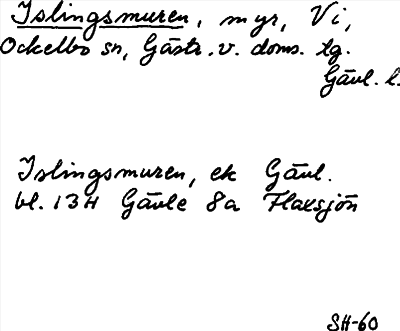 Islingsmuren, myr, Vi,
Ockelbo sn, Gästr. v. doms. tg.
Gävl. l.
Islingsmuren, ek Gävl.
bl. 13H Gävle 8a Flaxsjön
SH-60